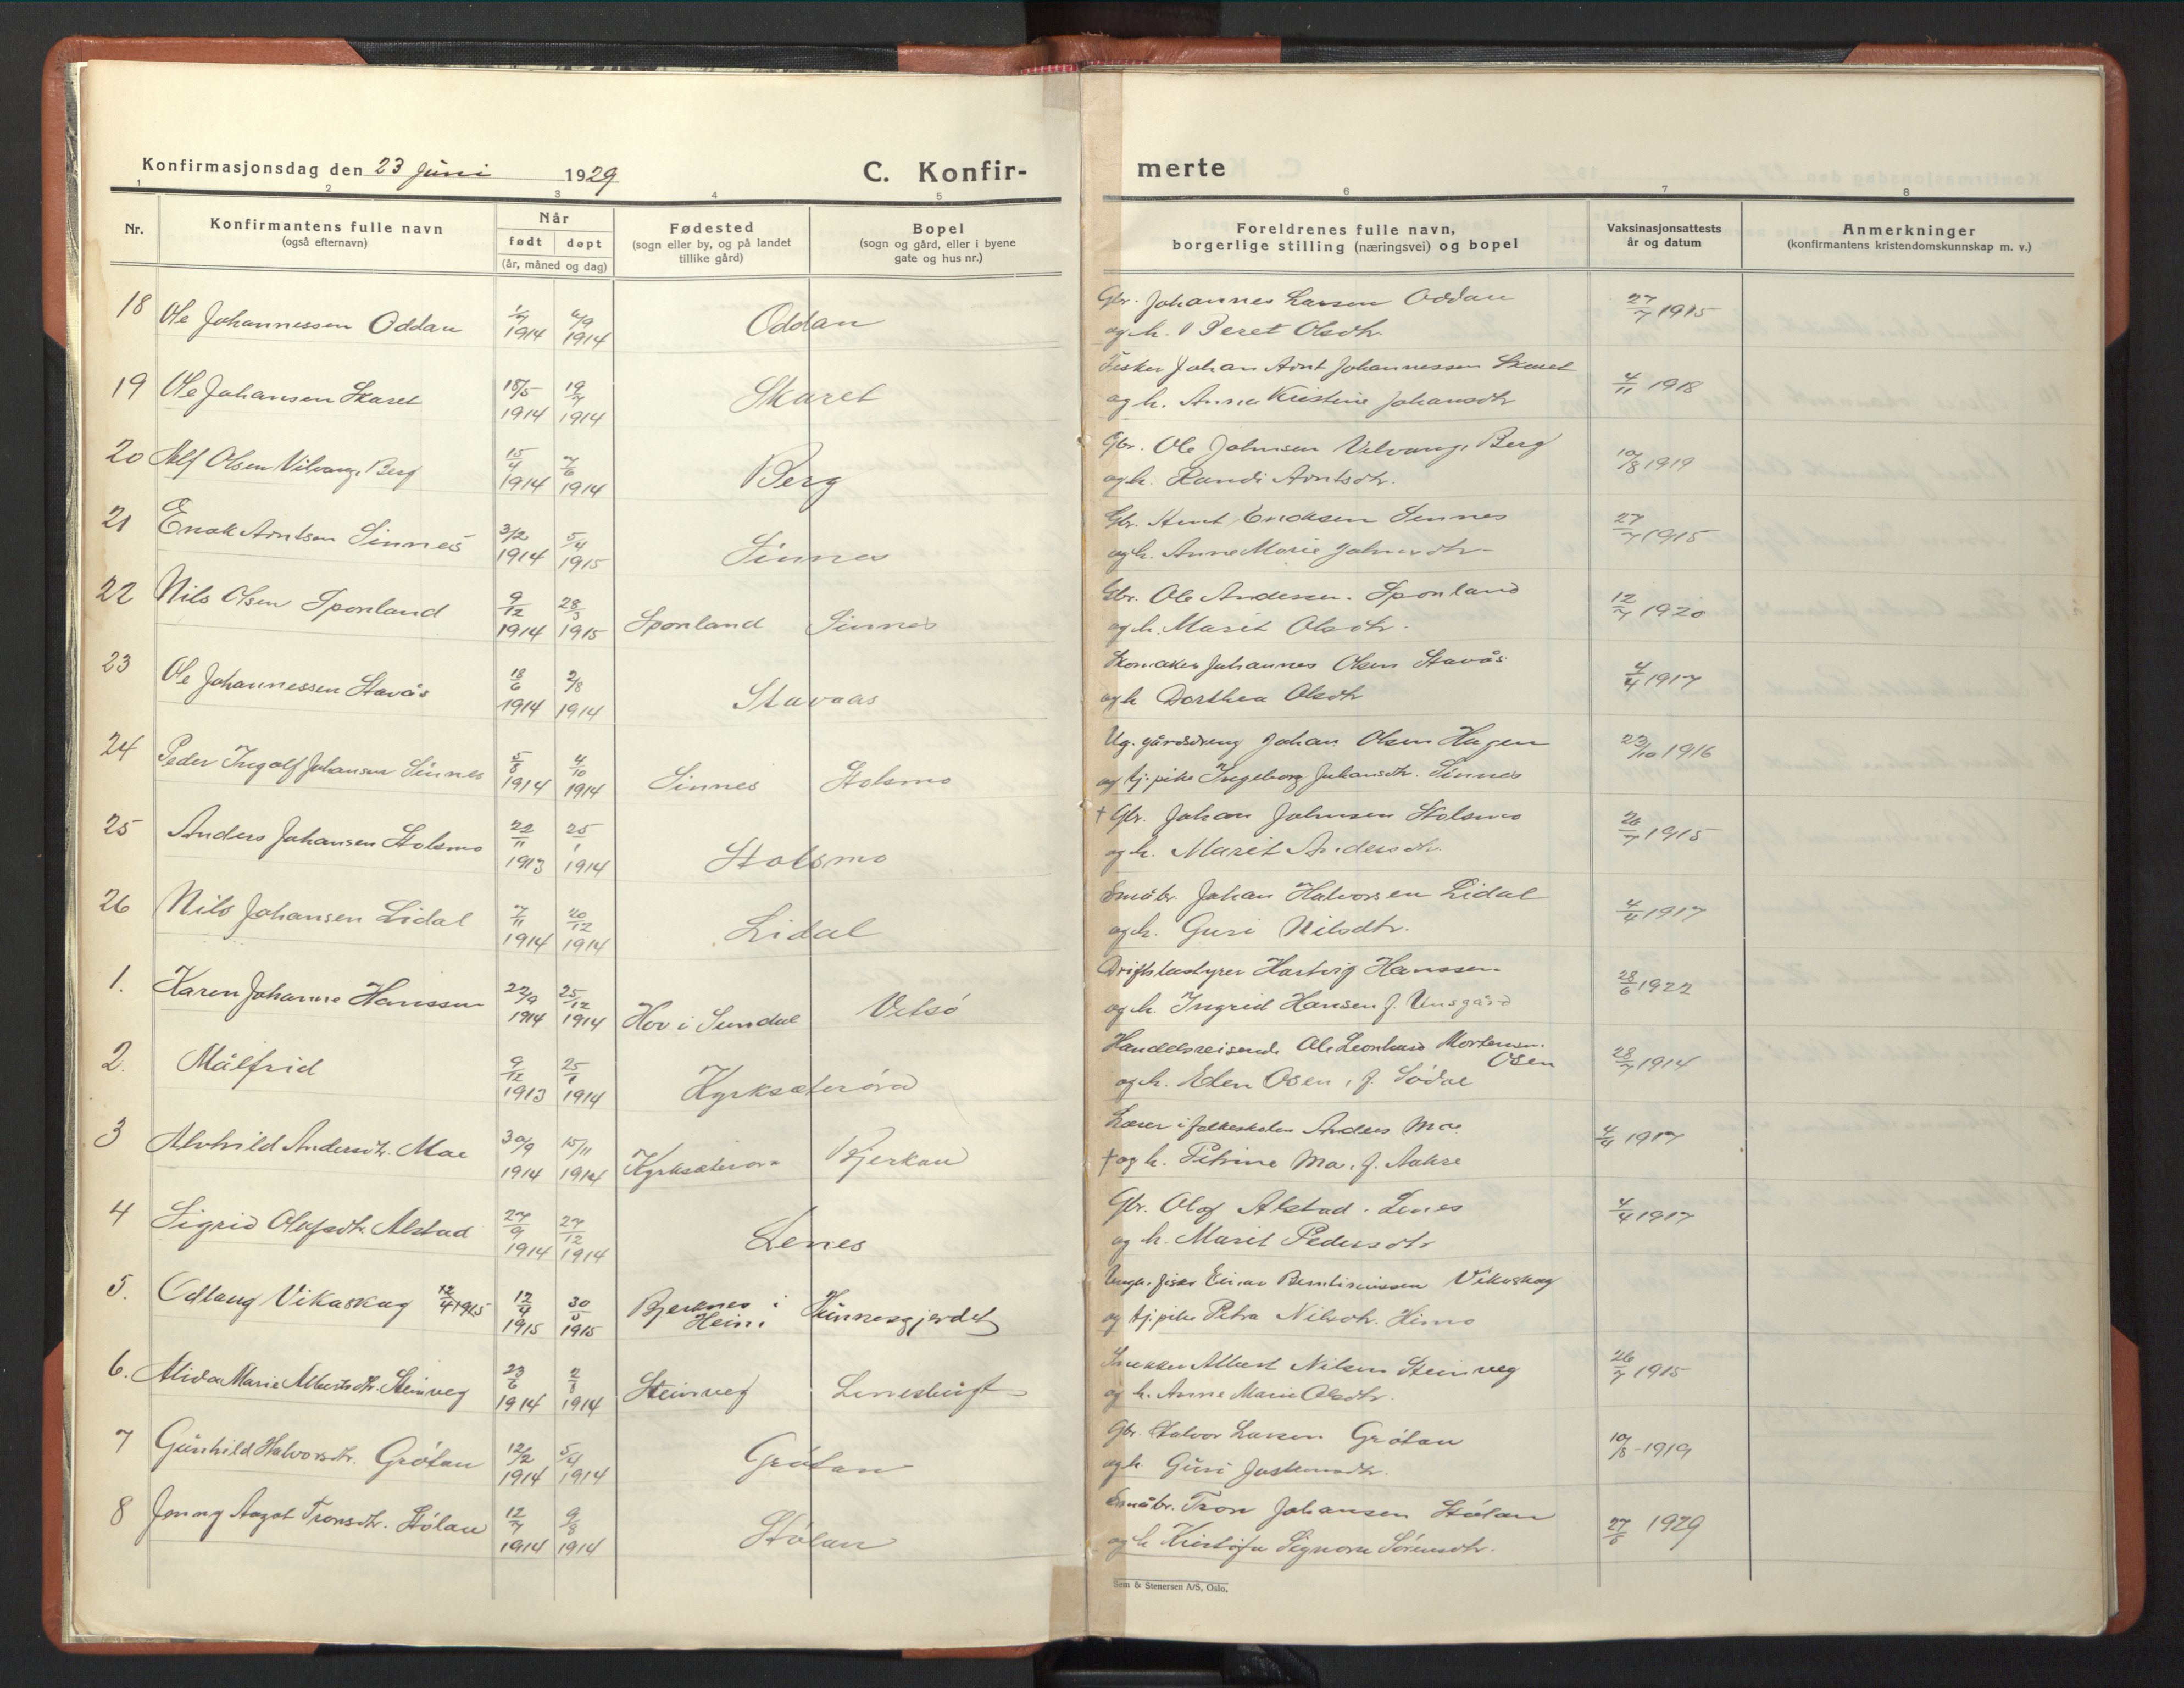 Konfirmasjonsdag den 23 Juni 1929
C. Konfir-
merte
1 2 3 4 5 6 7 8
Nr.
Konfirmantens fulle navn
(også efternavn)
Når
født døpt
(år, måned og dag)
Fødested
(sogn eller by, og på landet
tillike gård)
Bopel
(sogn og gård, eller i byene
gate og hus nr.)
Foreldrenes fulle navn,
borgerlige stilling (næringsvei) og bopel
Vaksinasjonsattests
år og datum
Anmerkninger
(konfirmantens kristendomskunnskap m. v.)
18 Ole Johannessen Oddan 1/7 1914 6/9 1914 Oddan Gbr. Johannes Larsen Oddan 27/7 1915
og h. Beret Olsdtr.
19 Ole Johansen Skaret 18/5 1914 19/7 1914 Skaret Fisker Johan Arnt Johannessen Skaret 4/11 1918
og h. Anna Kristine Johansdtr
20 Alf Olsen Vilvang, Berg 15/4 1914 7/6 1914 Berg Gbr. Ole Johnsen Vilvang, Berg 10/8 1919
og h. Randi Arntsdtr.
21 Enok Arntsen Sinnes 3/2 1914 5/4 1915 Sinnes Gbr. Arnt Enoksen Sinnes 27/7 1915
og h. Anne Marie Johnsdtr
22 Nils Olsen Sponland 9/12 1914 28/3 1915 Sponland Sinnes Gbr. Ole Andersen Sponland 12/7 1920
og h. Marit Olsdtr.
23 Ole Johannessen Stavås 18/6 1914 2/8 1914 Stavaas Skomaker Johannes Olsen Stavås 4/4 1917
og h Dorthea Olsdtr
24 Peder Ingolf Johansen Sinnes 5/8 1914 4/10 1914 Sinnes Stolsmo Ug. gårdsdreng Johan Olsen Hagen 23/10 1916
og tj. pike Ingeborg Johansdtr. Sinnes
25 Anders Johansen Stolsmo 22/11 1913 25/1 1914 Stolsmo † Gbr. Johan Johnsen Stolsmo 26/7 1915
og h. Marit Andersdtr.
26 Nils Johansen Lidal 7/11 1914 20/12 1914 Lidal Småbr. Johan Halvorsen Lidal 4/4 1917
og h. Guri Nilsdtr.
1. Karen Johanne Hanssen 22/9 1914 25/12 1914 Hov i Sundal Vetsö Driftsbestyrer Hartvig Hanssen 28/6 1922
og h. Ingrid Hansen f.
2. Målfrid 9/12 1913 25/1 1914 Kyrksæterøra Handelsreisende Ole Leonhard Mortensen 28/7 1914
Osen
og h. Elen Osen, f. Södal
3 Alvhild Andersdtr. Moe 30/9 1914 15/11 1914 Kyrksæterøra Bjerkan Lærer i folkeskolen Anders Mo 4/4 1917
† og h. Petrine Mo, f. Aakre
4 Sigrid Olafsdtr. Alstad 27/9 1914 27/12 1914 Lenes Gbr. Olof Alstad, Lenes 4/4 1917
og h. Marit Pedersdtr
5. Odlaug Vikaskag 12/4 1915 12/4 1915 30/5 1915 Bjerknes i Hunnesgjerdet Ungk. fisker Einar Vikaskag
Heim
og tj. pike Petra Nilsdtr. Himo
6. Alida Marie Albertsdtr. Steinveg 23/6 1914 2/8 1914 Steinveg Lenesbugt Snekker Albert Nilsen Steinveg 26/7 1915
og h. Anne Marie Olsdtr.
7 Gunhild Halvorsdtr. Grötan 12/2 1914 5/4 1914 Grötan Gbr. Halvor Larsen Grötan 10/8 1919
og h Guri Jostensdtr.
8 Jenny Aagot Tronsdtr. Stölan 12/7 1914 9/8 1914 Stölan Småbr. Tron Johansen Stölan 27/5 1929
og h Kristofa Signora Sörensdtr.
Sem & Stenersen A/S, Oslo.